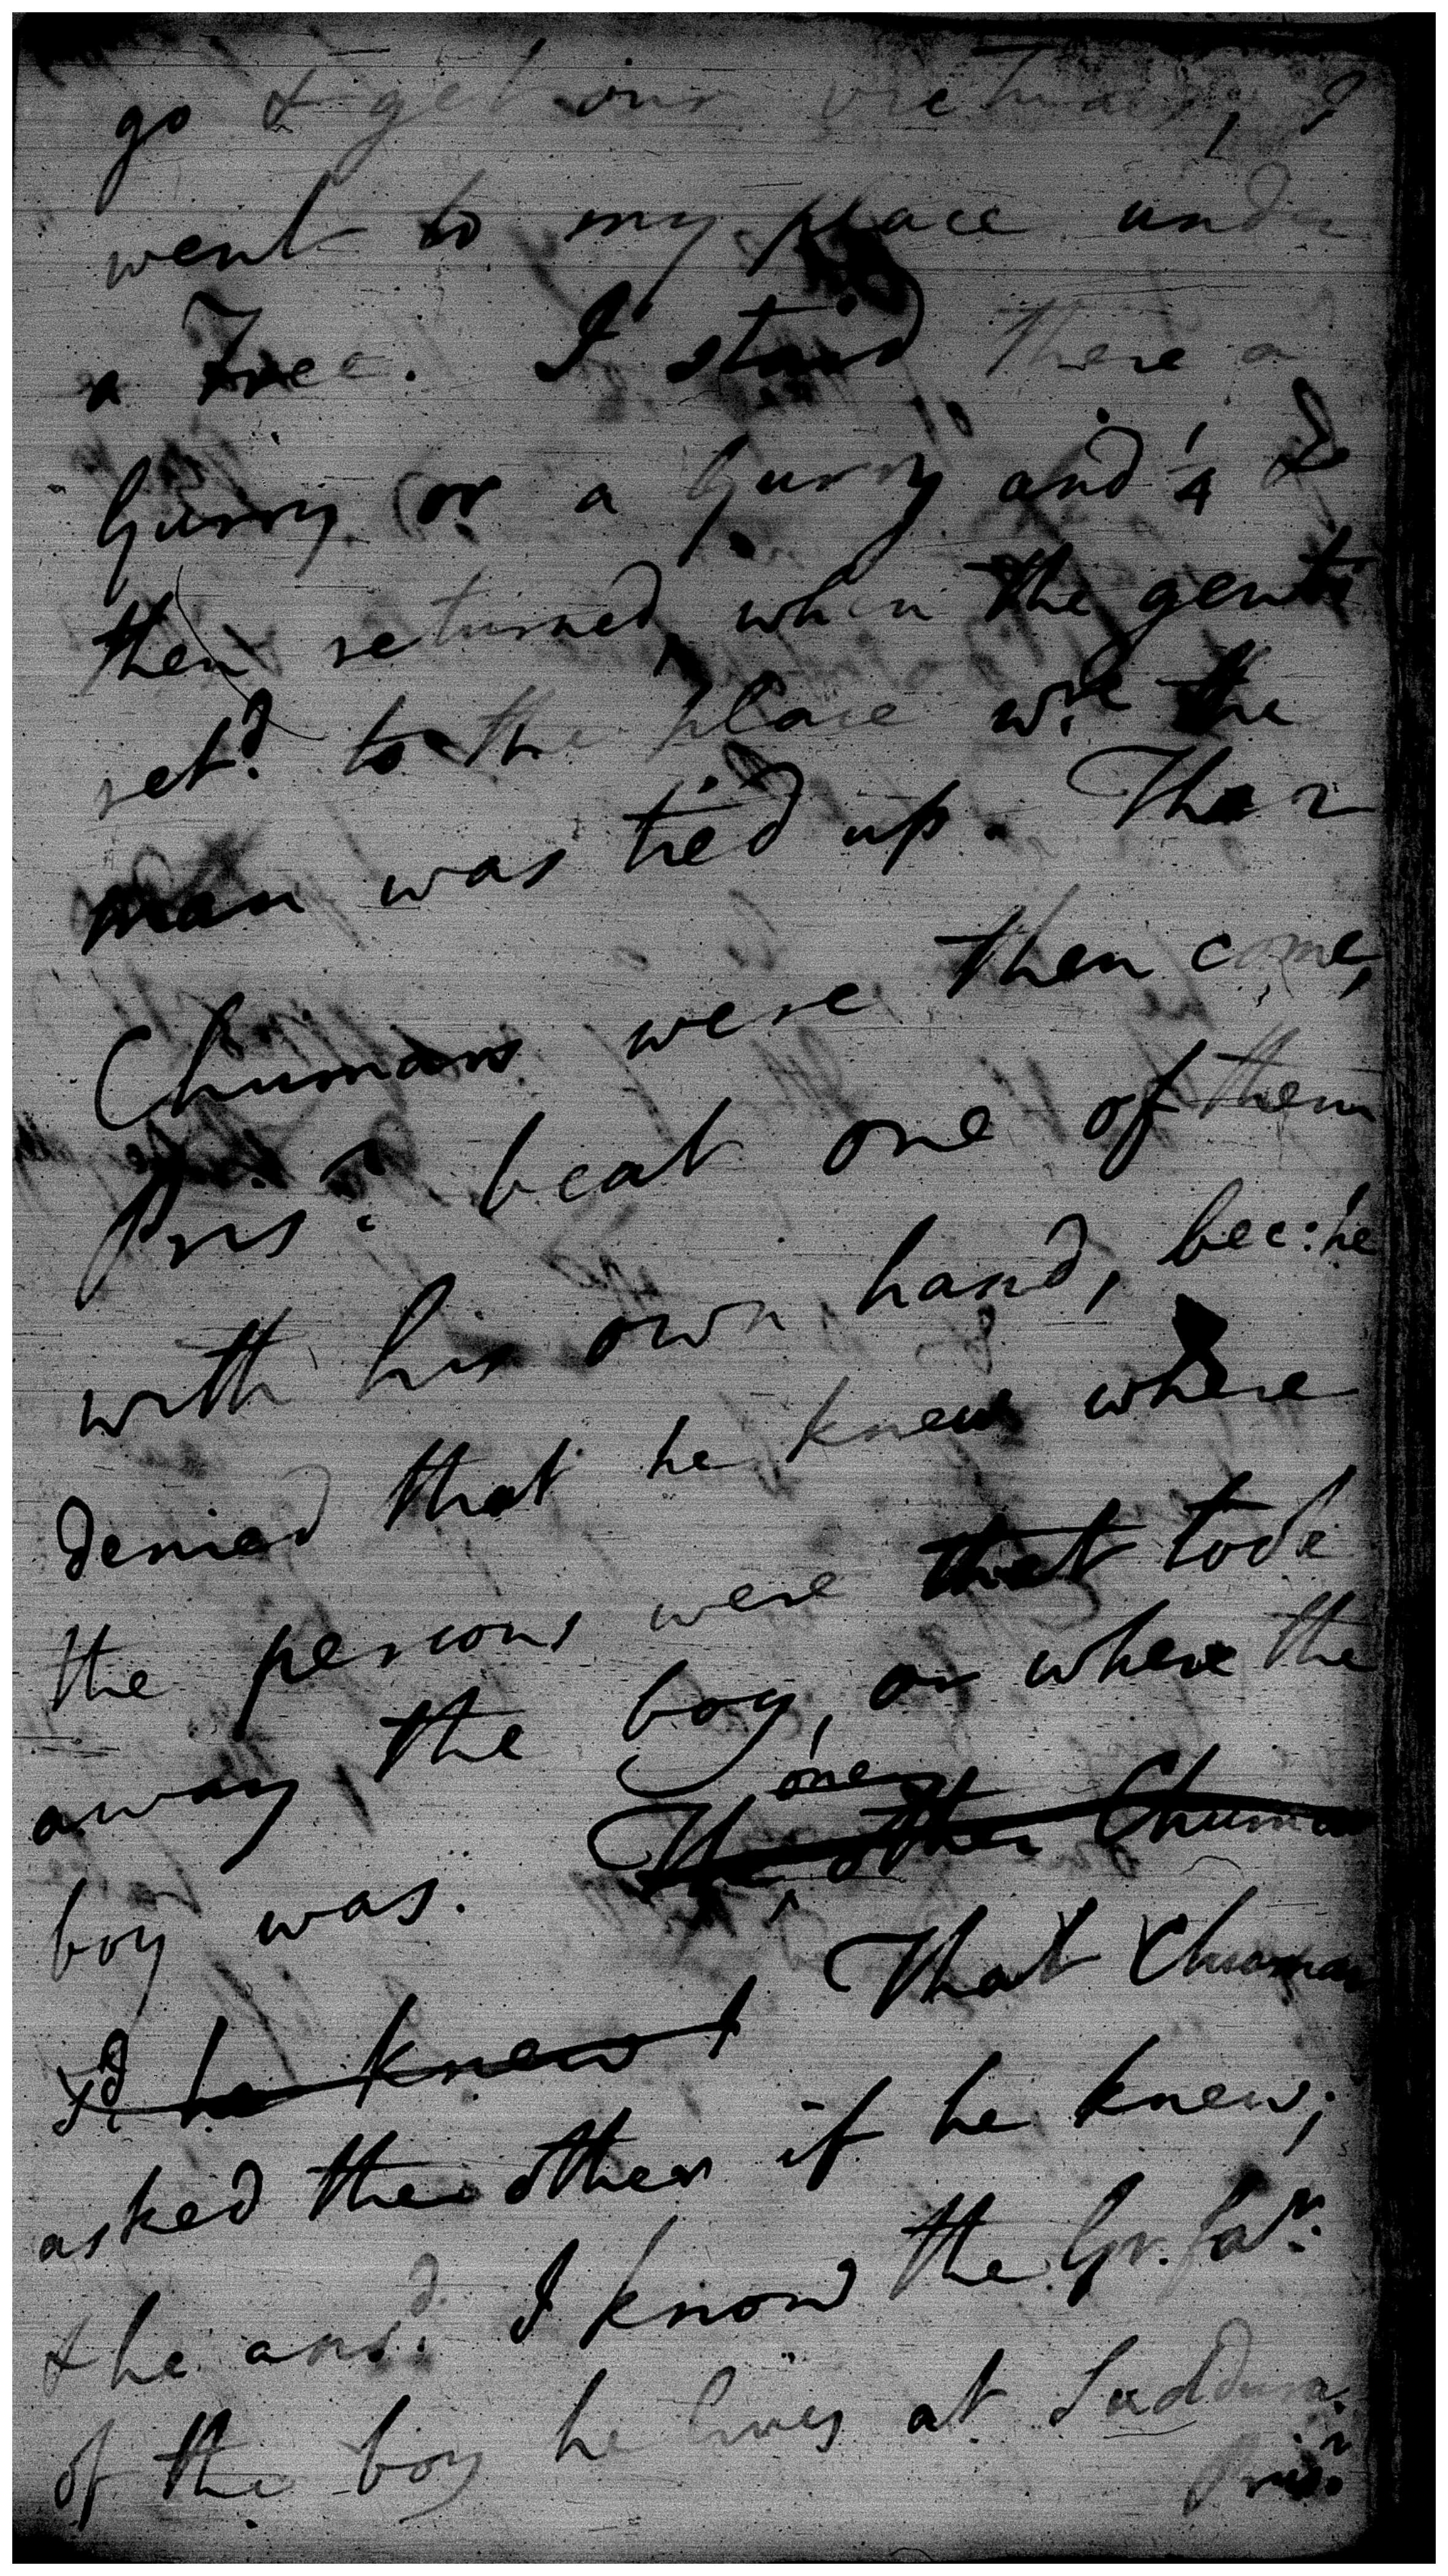 go & get our victuals, I
went to my place under
a Tree. I staid there a
Gurry or a Gurry and ¼ &
then returned, when the gentn
retd. to the place wre the
man was tied up. The 2
Chumars were then come,
Prisr. beat one of them
with his own hand, bec: he
denied that he knew where
the persons were that took
away the boy, or where the
boy was. The other one Chumar
sd he knew & That Chumar
asked the other if he knew;
& he ansd. I know the Gr. far.
of the boy he lives at Suddura.
Prisr.